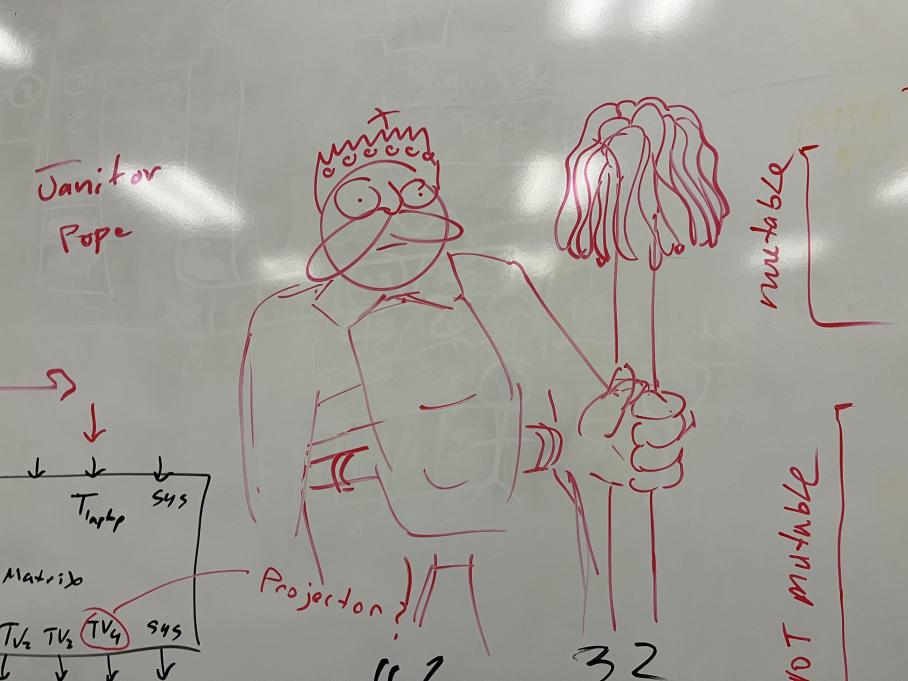 Janitor
Pope
mutable
NOT mutable
Tlaptop sys
Matrix
TV2 TV3 TV4 sys
Projector?
32